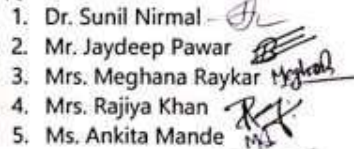 1. Dr. Sunil Nirmal
2. Mr. Jaydeep Pawar
3. Mrs. Meghana Raykar
4. Mrs. Rajiya Khan
5. Ms. Ankita Mande